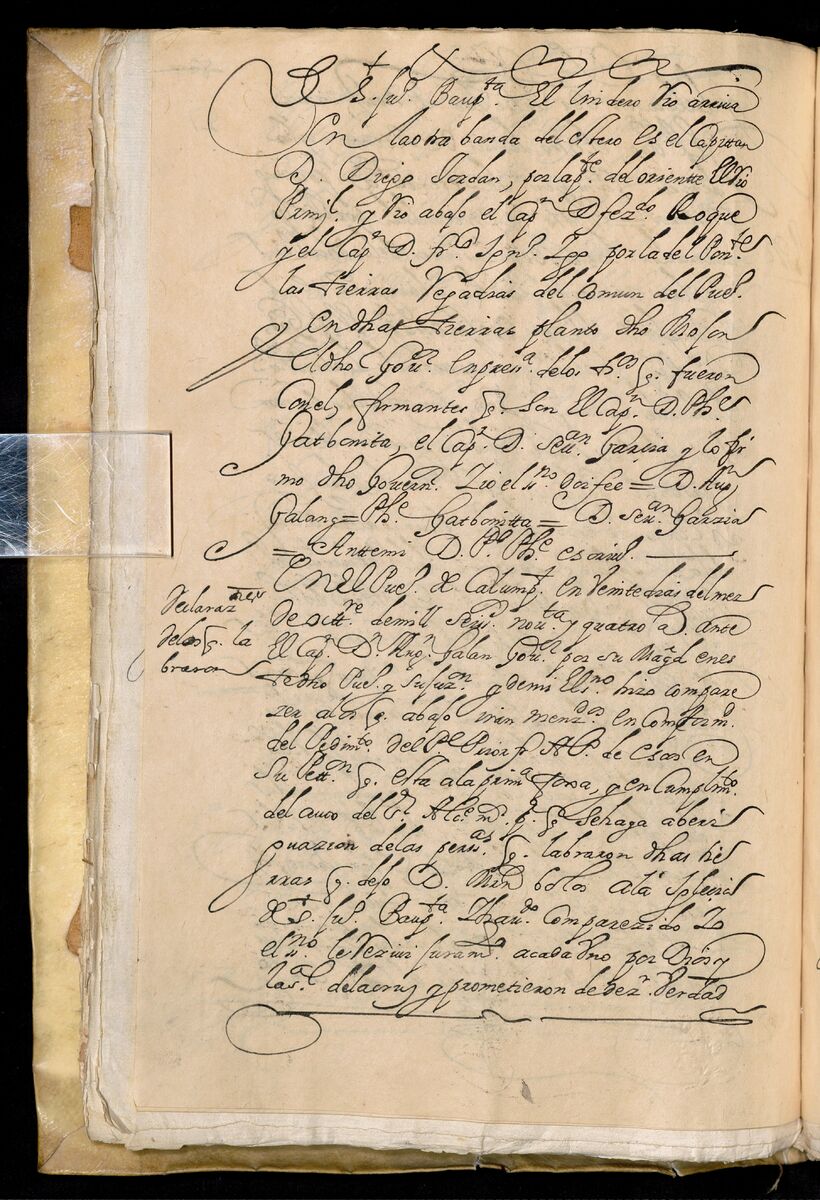 S.t Ju.o Baup.ta El lindero Rio arriva
En la otra banda del estero es el Capittan
D. Diego Jordan, por la p.te del oriente El Rio
Prinsi.l y Rio abajo el Cap.n D fez.do Roque
y el Cap.n D. fr.o Ign.o por la del Pon.te
las tierras Regadias del Comun del Pue.o
En dhas tierras planto dho Mojon
El dho Gou.or En pres.a de los t.os q. fueron
Con el, firmantes q. son El Cap.n D. Ph.e
Gatbonita, el Cap.n D. Seu.an Garçia y lo fir
mo dho Gouern.r Yo el ss.no doi fee = D. Aug.n
Galang = Ph.e Gatbonitta = D. Seu.an Garzia
= Anttemi D. Ph.e escriu.o
Declaraz.nes
de los q. la
braron
En El Pue.o de Calump.t en Veinte dias del mes
de oct.re de mill seis.s nou.ta y quatro a.s ante
El Cap.n D.n Aug.n Galan Gou.or por su Mag.d en es
te dho Pue.o y su jur.on y de mi El ss.no hizo compare
zer a los q. abajo iran menz.dos en Conform.d
del Pedim.to del P.e Prior fr. de Esar en
Su Pett.on q. esta a la prim.a foxa, y en Cumplim.to
del auto del S.r Alc.e m.r p.a q. Se haga aberi
guazion de las pers.as q. labraron dhas tie
rras q. dejo D. Min bolos a la Iglecia
de S.t Ju.o Baup.ta Y hau.do Comparezido Yo
el ss.no le Reziui juram.to a cada Vno por Dios y
la s.l de la cruz y prometieron de dez.r Verdad